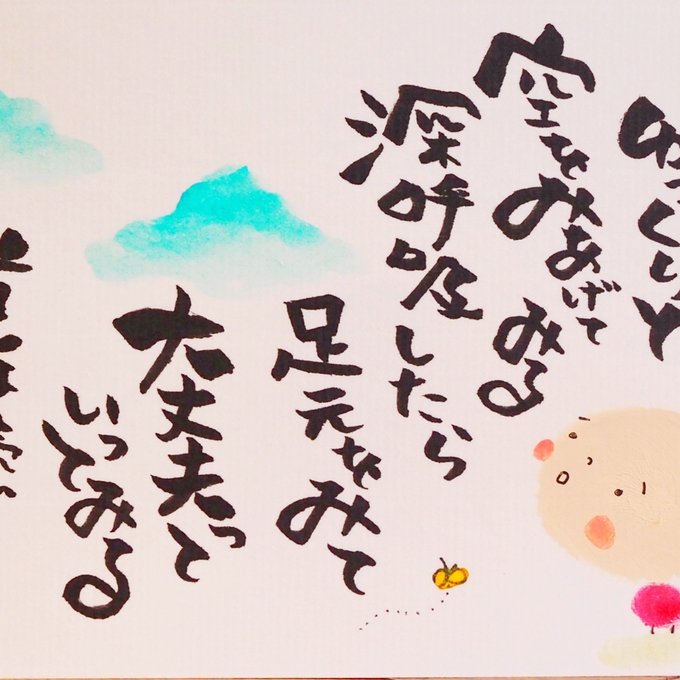 ゆっくりと
空をみあげて
みる
深呼吸したら
足元をみて
大丈夫って
いってみる